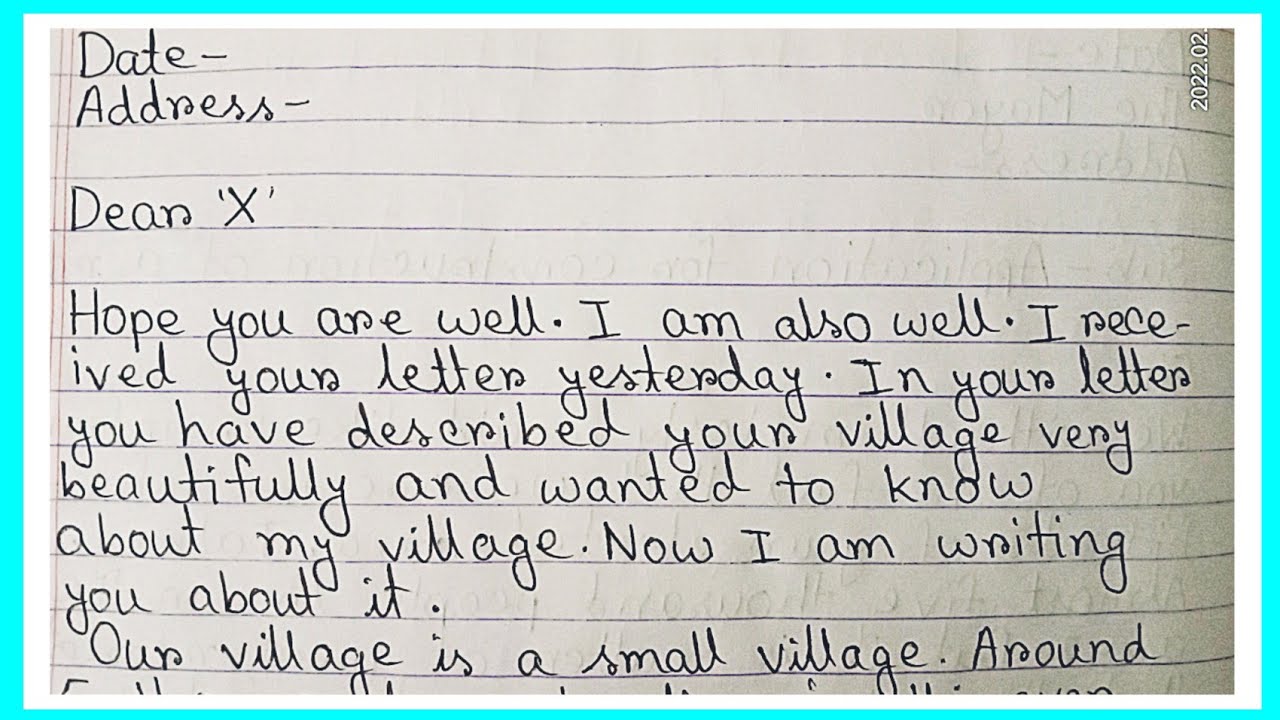 Date-
Address-
Dear 'X'
Hope you are well. I am also well. I rece-
ived your letter yesterday. In your letter
you have described your village very
beautifully and wanted to know
about my village. Now I am writing
you about it.
Our village is a small village. Around
2022.02.